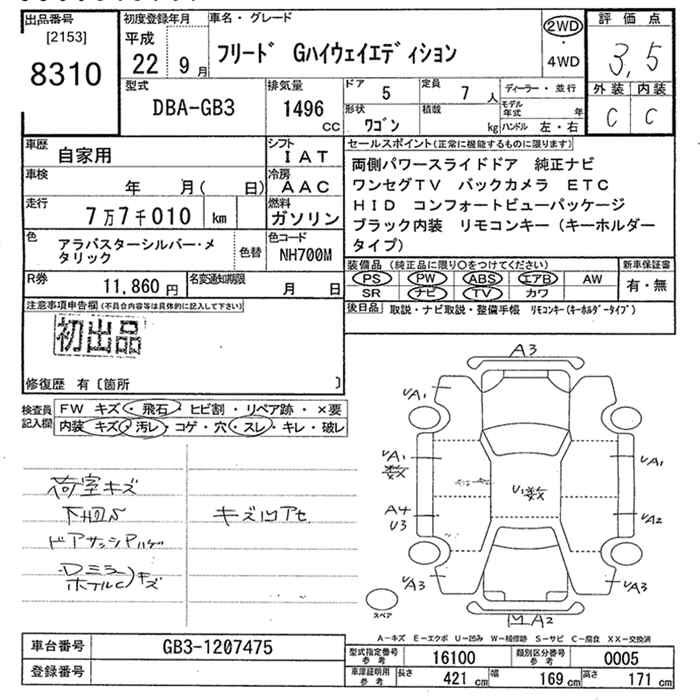 出品番号
[2153]
8310
初度登録年月
平成
22 9月
車名・グレード
フリード Gハイウェイエディション
2WD
・
4WD
評価点
3,5
外装 内装
C C
型式
DBA-GB3
排気量
1496
CC
ドア 5
定員 7 人
ディーラー・並行
形状
ワゴン
積載 kg
モデル年式 年
ハンドル 左・右
車歴
自家用
シフト
IAT
車検
年 月( 日)
冷房
AAC
走行
7万7千010 km
燃料
ガソリン
色
アラバスターシルバー・メ
タリック
色替
色コード
NH700M
R券
11,860円
名変通知期限
月 日
セールスポイント(正常に機能するものに限ります)
両側パワースライドドア 純正ナビ
ワンセグTV バックカメラ ETC
HID コンフォートビューパッケージ
ブラック内装 リモコンキー(キーホルダー
タイプ)
装備品(純正品に限り○をつけてください)
新車保証書
PS PW ABS エアB AW
SR ナビ TV カワ
有・無
後日品
取説・ナビ取説・整備手帳 リモコンキー(キーホルダータイプ)
注意事項申告欄(不具合内容等は具体的に記入して下さい)
初出品
修復歴 有〔箇所 〕
検査員
記入欄
FW キズ・飛石・ヒビ割・リペア跡・×要
内装 キズ・汚レ・コゲ・穴・スレ・キレ・破レ
荷室キズ
下回S
キズ凹アセ
ドアサッシハゲ
Dミラー
ホイルC
キズ
A3
UA1
UA1
数
UA1
U1数
A4
U3
UA2
UA3
UA3
A2
スペア
A-キズ E-エクボ U-凹み W-補修跡 S-サビ C-腐食 XX-交換済
車台番号
GB3-1207475
登録番号
型式指定番号
参考
16100
類別区分番号
参考
0005
車庫証明用
参考
長さ 421 cm
幅 169 cm
高さ 171 cm